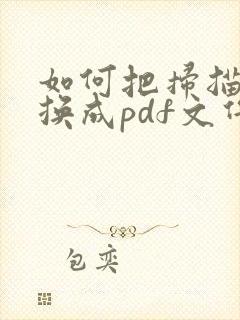 如何把扫描
换成pdf文
包奕